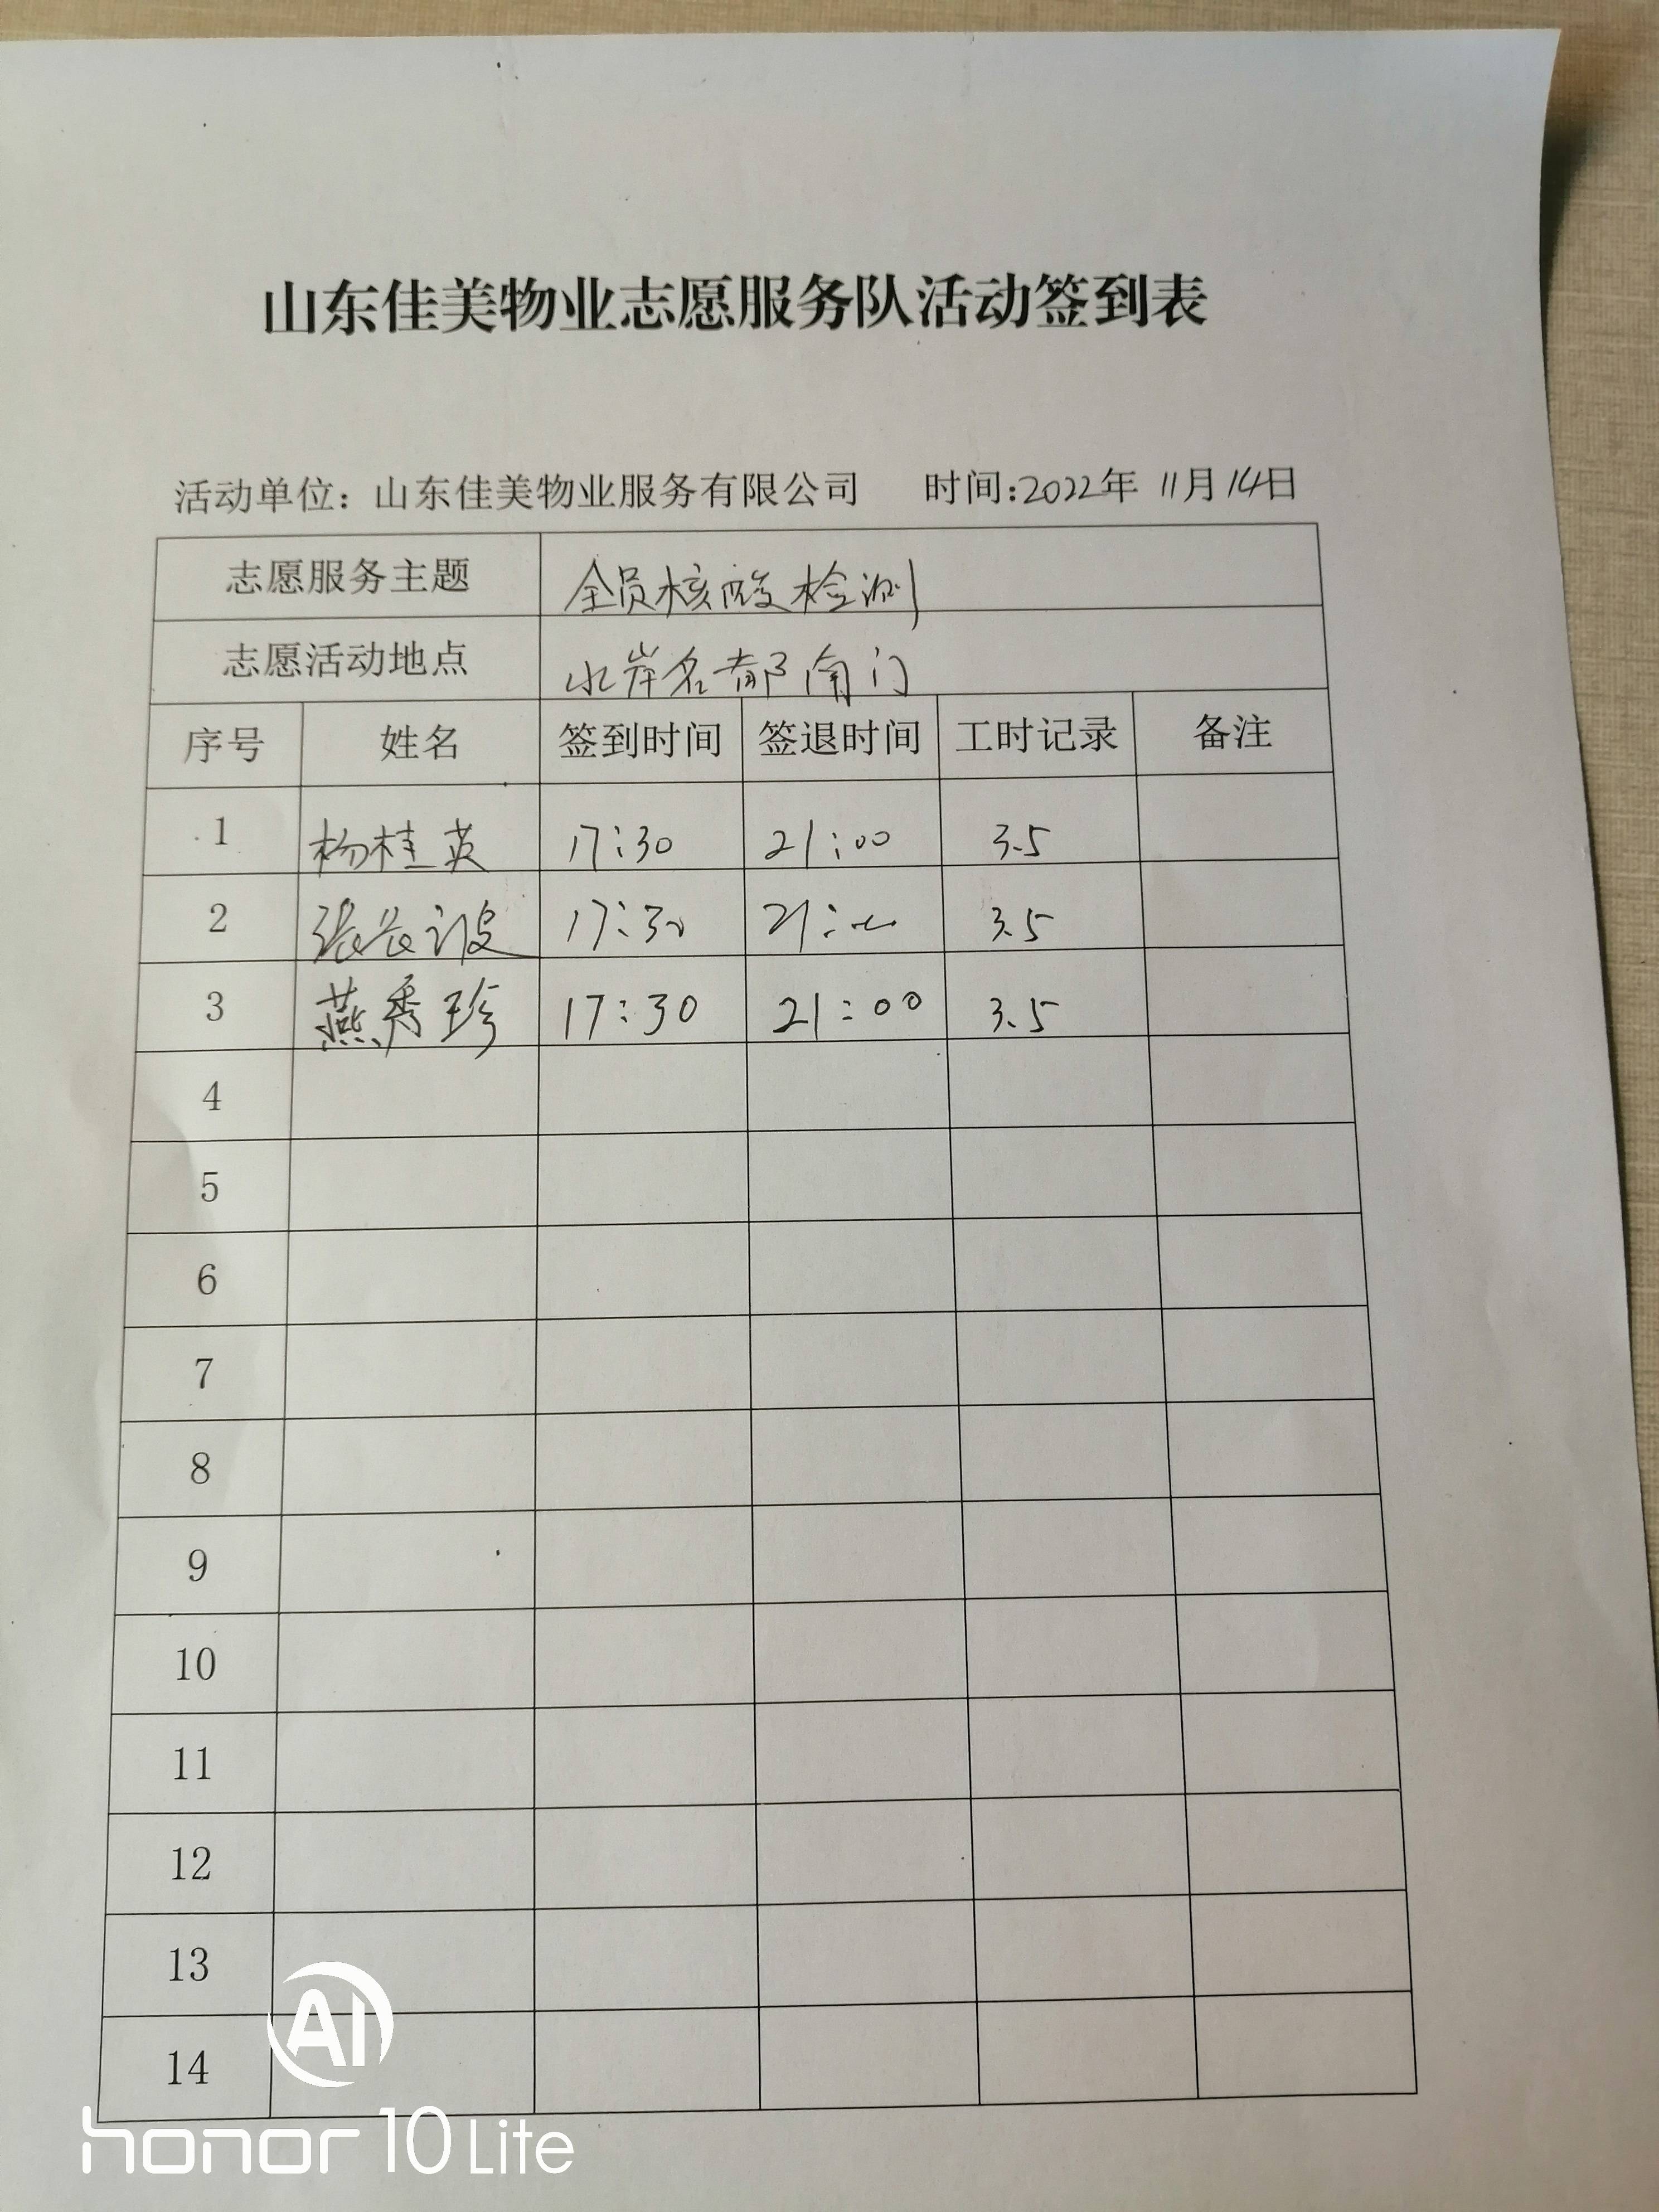 山东佳美物业志愿服务队活动签到表
活动单位：山东佳美物业服务有限公司 时间:2022年 11月14日
志愿服务主题 全员核酸检测
志愿活动地点 水岸名都南门
序号 姓名 签到时间 签退时间 工时记录 备注
1 杨桂英 17:30 21:00 3.5
2 张长波 17:30 21:00 3.5
3 燕秀珍 17:30 21:00 3.5
4
5
6
7
8
9
10
11
12
13
14
AI
honor 10 Lite